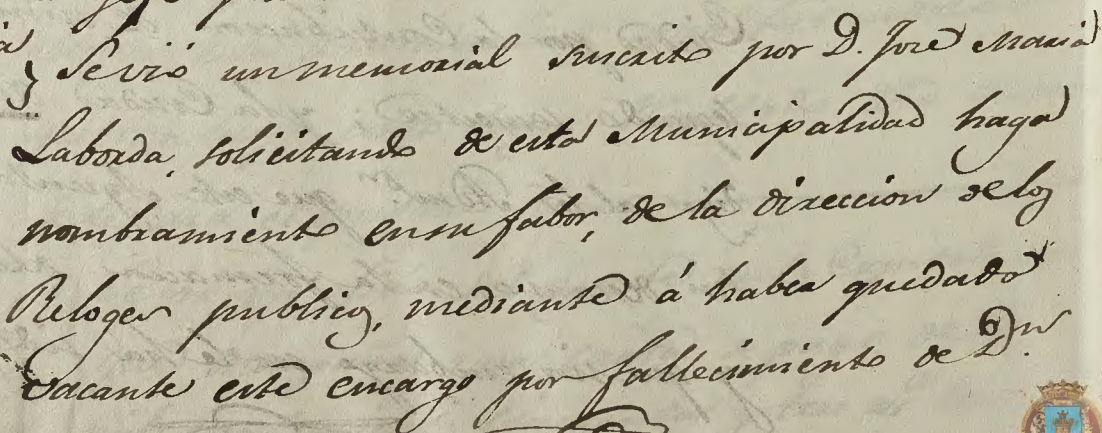 Se vió un memorial suscrito por D. José Maria
Laborda, solicitando de esta Municipalidad haga
nombramiento en su fabor, de la direccion de los
Reloges publicos, mediante á haber quedado
vacante este encargo por fallecimiento de Dn